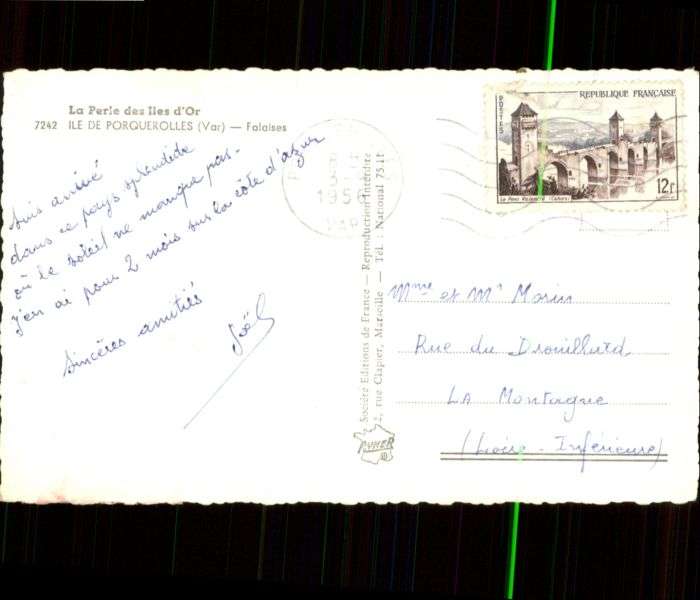 La Perle des Iles d'Or
7242 ILE DE PORQUEROLLES (Var) — Falaises
Suis arrivé
dans ce pays splendide
où le soleil ne manque pas.
J'en ai pour 2 mois sur la côte d'azur
Sincères amitiés
Joël
Société Editions de France — Reproduction Interdite
2, rue Clapier, Marseille — Tél. : National 75-41
REPUBLIQUE FRANÇAISE
POSTES
12F
Le Pont Valentré (Cahors)
Mme et Mr Morin
Rue du Drouillard
LA Montagne
(Loire-Inférieure)